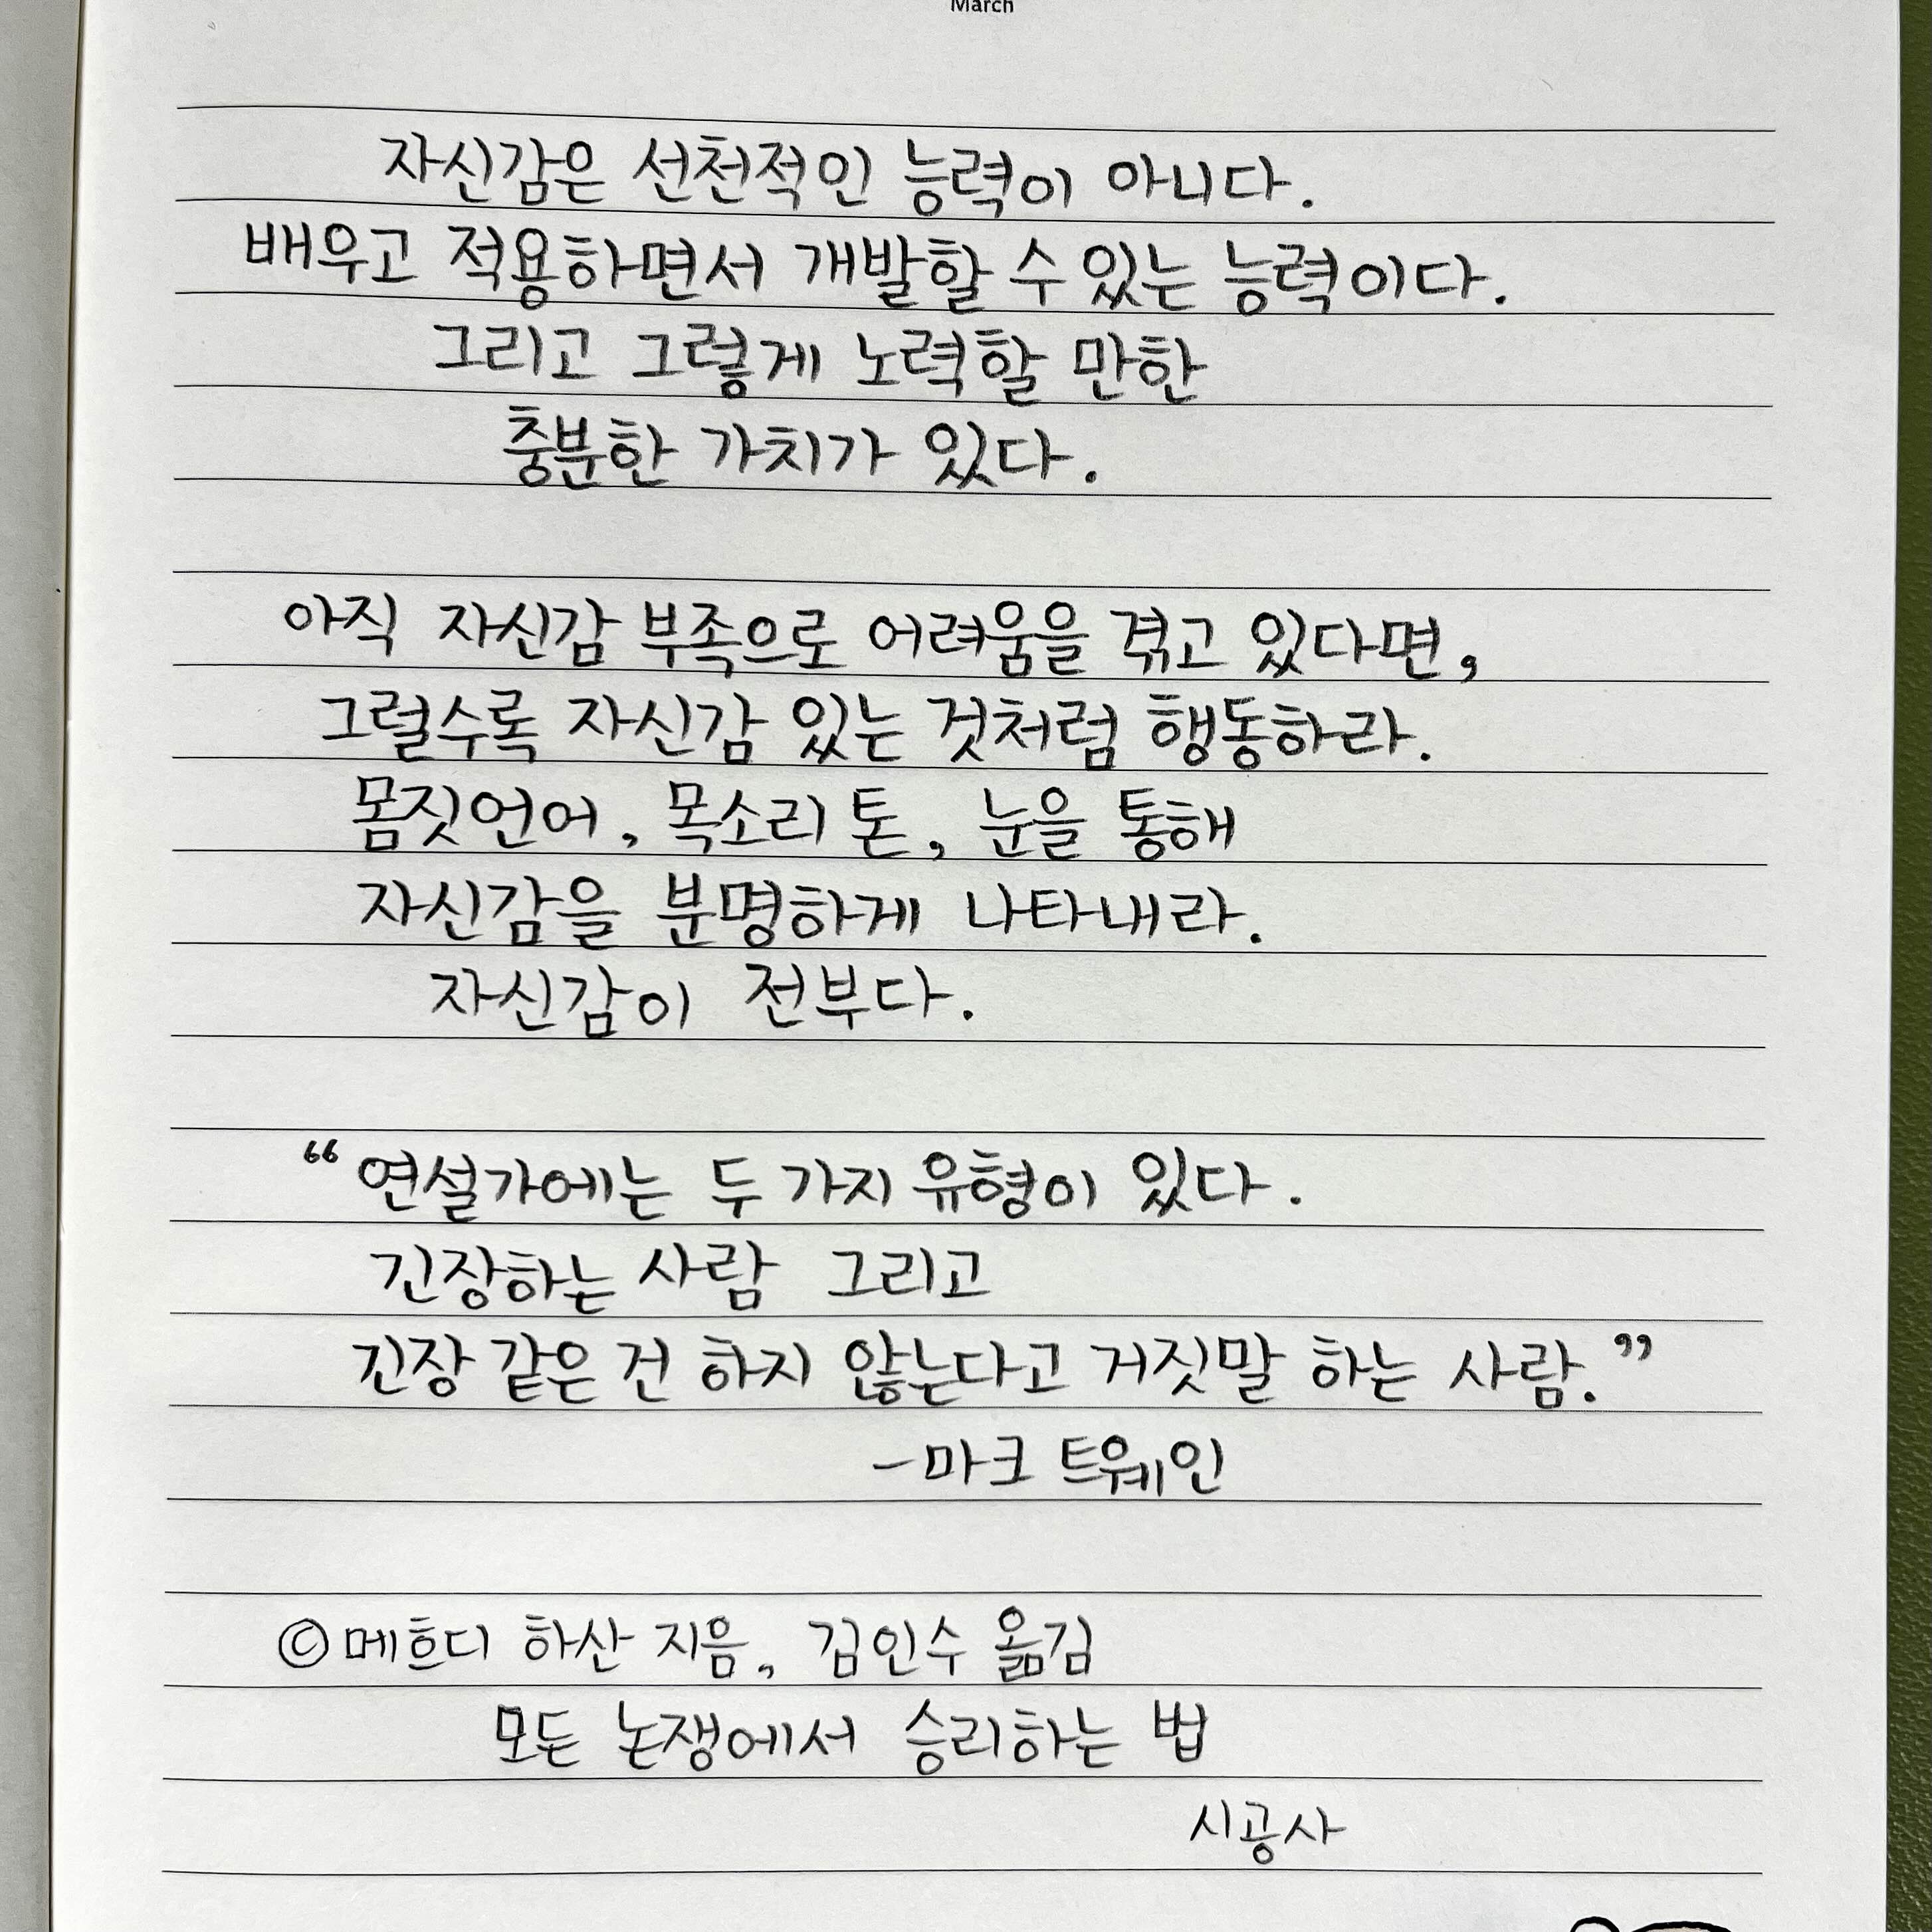 March
자신감은 선천적인 능력이 아니다.
배우고 적용하면서 개발할 수 있는 능력이다.
그리고 그렇게 노력할 만한
충분한 가치가 있다.
아직 자신감 부족으로 어려움을 겪고 있다면,
그럴수록 자신감 있는 것처럼 행동하라.
몸짓언어, 목소리 톤, 눈을 통해
자신감을 분명하게 나타내라.
자신감이 전부다.
“연설가에는 두 가지 유형이 있다.
긴장하는 사람 그리고
긴장 같은 건 하지 않는다고 거짓말 하는 사람.”
-마크 트웨인
©메흐디 하산 지음, 김인수 옮김
모든 논쟁에서 승리하는 법
시공사